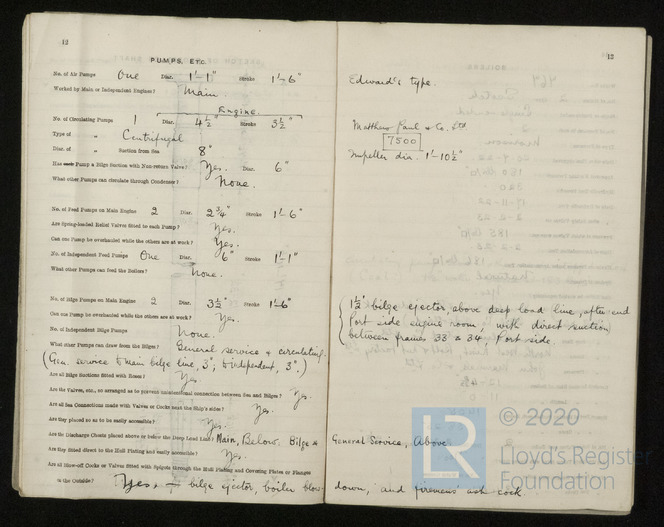 12
PUMPS, ETC.
No. of Air Pumps One Diar. 1'-1" Stroke 1'-6"
Worked by Main or Independent Engines? Main
Engine.
No. of Circulating Pumps 1 Diar. 4½" Stroke 3½"
Type of " Centrifugal
Diar. of " Suction from Sea 8"
Has each Pump a Bilge Suction with Non-return Valve? Yes. Diar. 6"
What other Pumps can circulate through Condenser? None.
No. of Feed Pumps on Main Engine 2 Diar. 2¾" Stroke 1'-6"
Are Spring-loaded Relief Valves fitted to each Pump? Yes.
Can one Pump be overhauled while the others are at work? Yes.
No. of Independent Feed Pumps One Diar. 6" Stroke 1'-1"
What other Pumps can feed the Boilers? None.
No. of Bilge Pumps on Main Engine 2 Diar. 3½" Stroke 1'-6"
Can one Pump be overhauled while the others are at work? Yes.
No. of Independent Bilge Pumps None.
What other Pumps can draw from the Bilges? General service & circulating.
(Gen. service to main bilge line, 3"; & independent, 3".)
Are all Bilge Suctions fitted with Roses? Yes
Are the Valves, &c., so arranged as to prevent unintentional connection between Sea and Bilges? Yes.
Are all Sea Connections made with Valves or Cocks next the Ship's sides? Yes.
Are they placed so as to be easily accessible? Yes.
Are the Discharge Chests placed above or below the Deep Load Line? Main, Below. Bilge & General Service, Above
Are they fitted direct to the Hull Plating and easily accessible? Yes.
Are all Blow-off Cocks or Valves fitted with Spigots through the Hull Plating and Covering Plates or Flanges
on the Outside? Yes, bilge ejector, boiler blow down, and firemens ash cock
13
Edward's type.
Matthew Paul & Co. Ltd
7500
Impeller dia. 1'-10½"
1½" bilge ejector, above deep load line, after-end
Port side engine room, with direct suction
between frames 33 & 34, Port side.
LR
© 2020
Lloyd's Register
Foundation